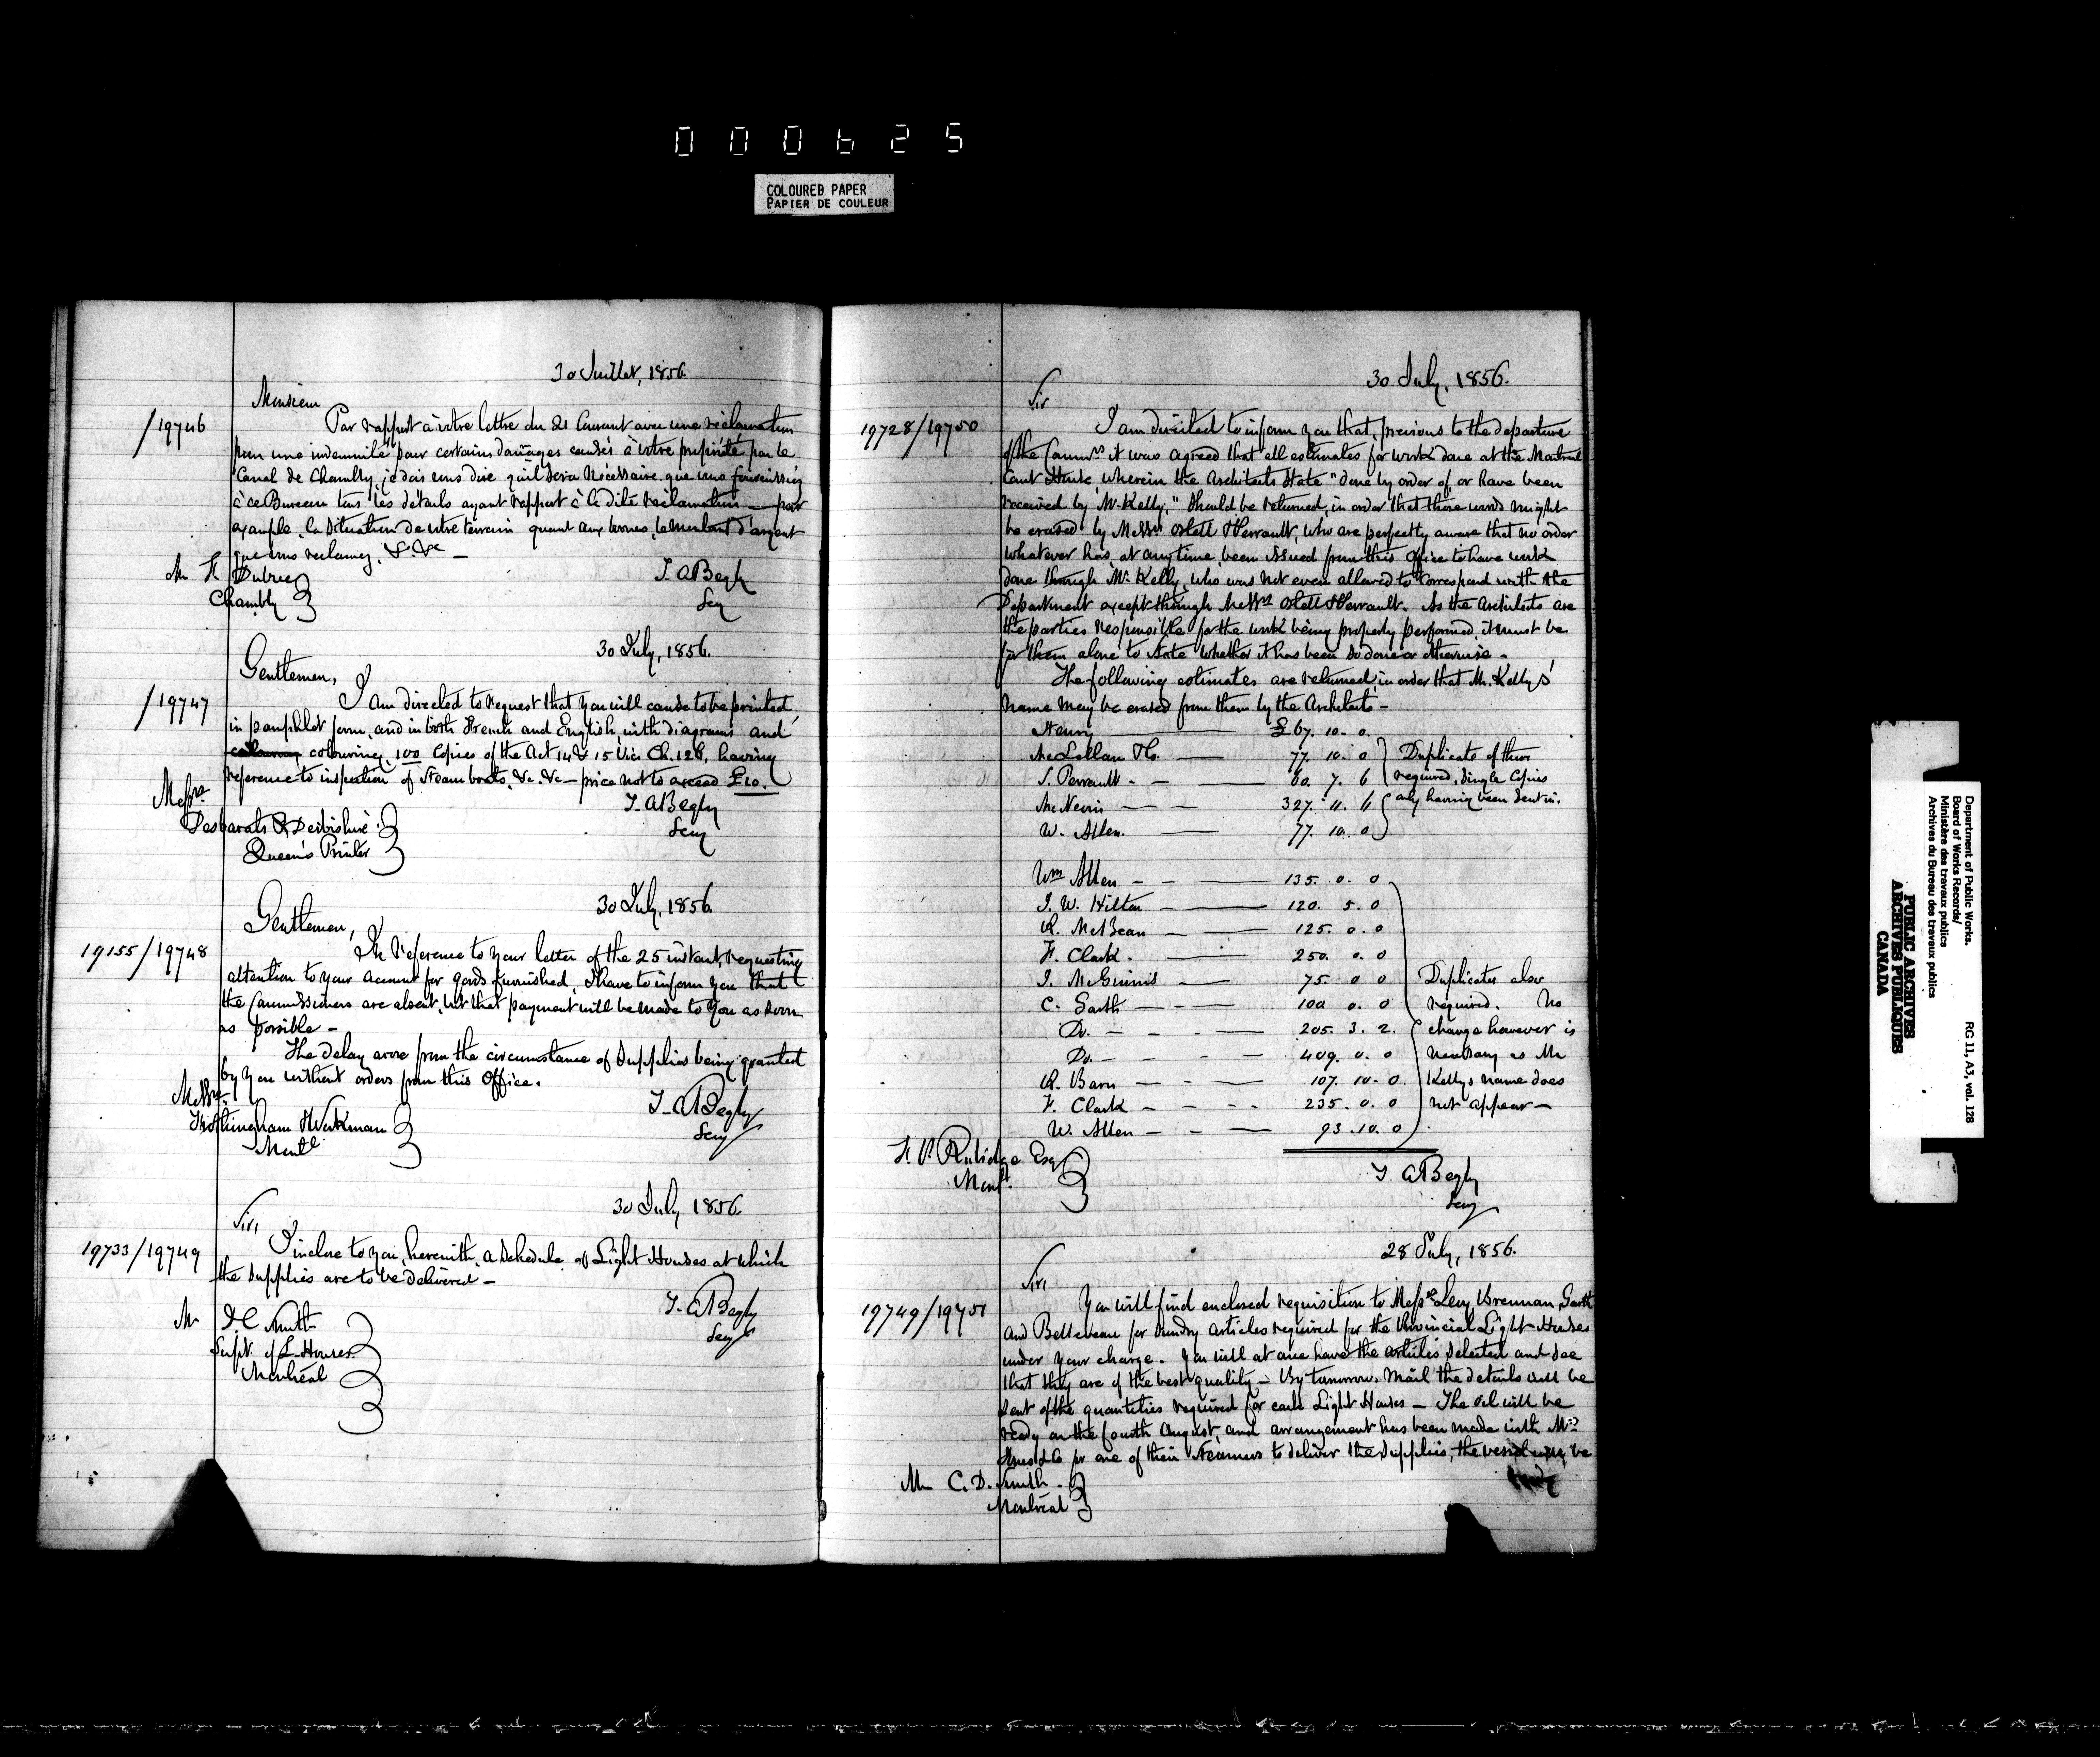 000625
COLOURED PAPER
PAPIER DE COULEUR
30 Juillet, 1856.
Monsieur
/19746
Par rapport à votre lettre du 21 Courant avec une réclamation
pour une indemnité pour certains dommages causés à votre propriété par le
Canal de Chambly, je dois vous dire qu'il sera nécessaire que vous fournissiez
à ce Bureau tous les détails ayant rapport à la dite réclamation — par
example, la situation de votre terrain quant aux bornes, le montant d'argent
que vous reclamez, &c. &c —
Mr F. Dubuc
Chambly
T. A Begly
Secy
30 July, 1856.
Gentlemen,
/19747
I am directed to request that you will cause to be printed,
in pamphlet form, and in both French and English, with diagrams and
colouring, 100 Copies of the Act 14 & 15 Vic. Ch. 126, having
reference to inspection of Steam boats, &c. &c — price not to exceed £10.
Messrs
Desbarats & Derbishire
Queen's Printer
T. A Begly
Secy
30 July, 1856.
Gentlemen,
19155/19748
In reference to your letter of the 25 instant, requesting
attention to your account for goods furnished, I have to inform you that
the Commissioners are absent, but that payment will be made to you as soon
as possible —
The delay arose from the circumstance of supplies being granted
by you without orders from this Office.
Messrs
Frothingham & Workman
Montl
T. A Begly
Secy
30 July 1856
Sir,
19733/19749
I inclose to you, herewith, a Schedule of Light Houses at which
the supplies are to be delivered —
Mr Smith
Supt. of L. Houses.
Montréal
T. A Begly
Secy
30 July, 1856.
Sir
19728/19750
I am directed to inform you that, previous to the departure
of the Commrs it was agreed that all estimates for work done at the Montreal
Court House, wherein the Architects State "done by order of, or have been
received by Mr. Kelly," should be returned, in order that those words might
be erased by Messrs Ostell & Perrault, who are perfectly aware that no order
whatever has, at any time, been issued from this Office to have work
done through Mr. Kelly, who was not even allowed to correspond with the
Department except through Messrs Ostell & Perrault. As the Architects are
the parties responsible for the work being properly performed, it must be
for them alone to State whether it has been so done or otherwise —
The following estimates are returned, in order that Mr. Kelly's
name may be erased from them by the Architects —
Henry — £67. 10. 0.
McLellan & Co. — 77. 10. 0
S. Perrault — 60. 7. 6
McNevin — 327. 11. 6
W. Allen. — 77. 10. 0
Duplicate of these
required, single Copies
only having been sent in.
Wm Allen — 135. 0. 0
J. W. Hilton — 120. 5. 0
R. McBean — 125. 0. 0
F. Clark. — 250. 0. 0
J. McGinnis — 75. 0 0
C. Garth — 100 0. 0
Do. — 205. 3. 2.
Do. — 409. 0. 0
R. Barn — 107. 10. 0.
F. Clark — 235. 0. 0
W. Allen — 93. 10. 0
Duplicates also
required. No
change however is
necessary as Mr
Kelly's name does
not appear —
F. P. Rubidge Esq
Montl.
T. A Begly
Secy
28 July, 1856.
Sir,
19749/19751
You will find enclosed requisition to Messrs Levy, Brennan, Garth
and Belleveau for sundry articles required for the Provincial Light Houses
under your charge. You will at once have the articles selected and see
that they are of the best quality — By tomorrow's mail the details will be
sent of the quantities required for each Light Houses — The oil will be
ready on the fourth August, and arrangement has been made with
Jones & Co for one of their Steamers to deliver the supplies, the vessel will be
Mr C. D. Smith.
Montréal
Department of Public Works.
Board of Works Records/
Ministère des travaux publics
Archives du Bureau des travaux publics
RG 11, A3, vol. 128
PUBLIC ARCHIVES
ARCHIVES PUBLIQUES
CANADA